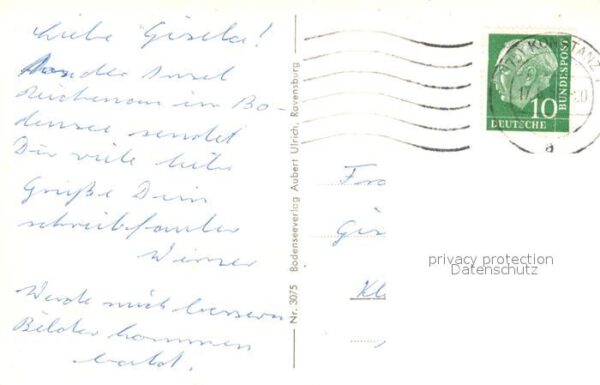 Liebe Gisela!
Von der Insel
Reichenau im Bo-
densee sendet
Dir viele liebe
Grüße Dein
schreibfauler
Werner
Werde mich bessern
Bilder kommen
bald.
Nr. 3075 Bodenseeverlag Aubert Ulrich, Ravensburg
KONSTANZ
17.
a
10
DEUTSCHE
BUNDESPOST
Fra
Gis
Kl
privacy protection
Datenschutz